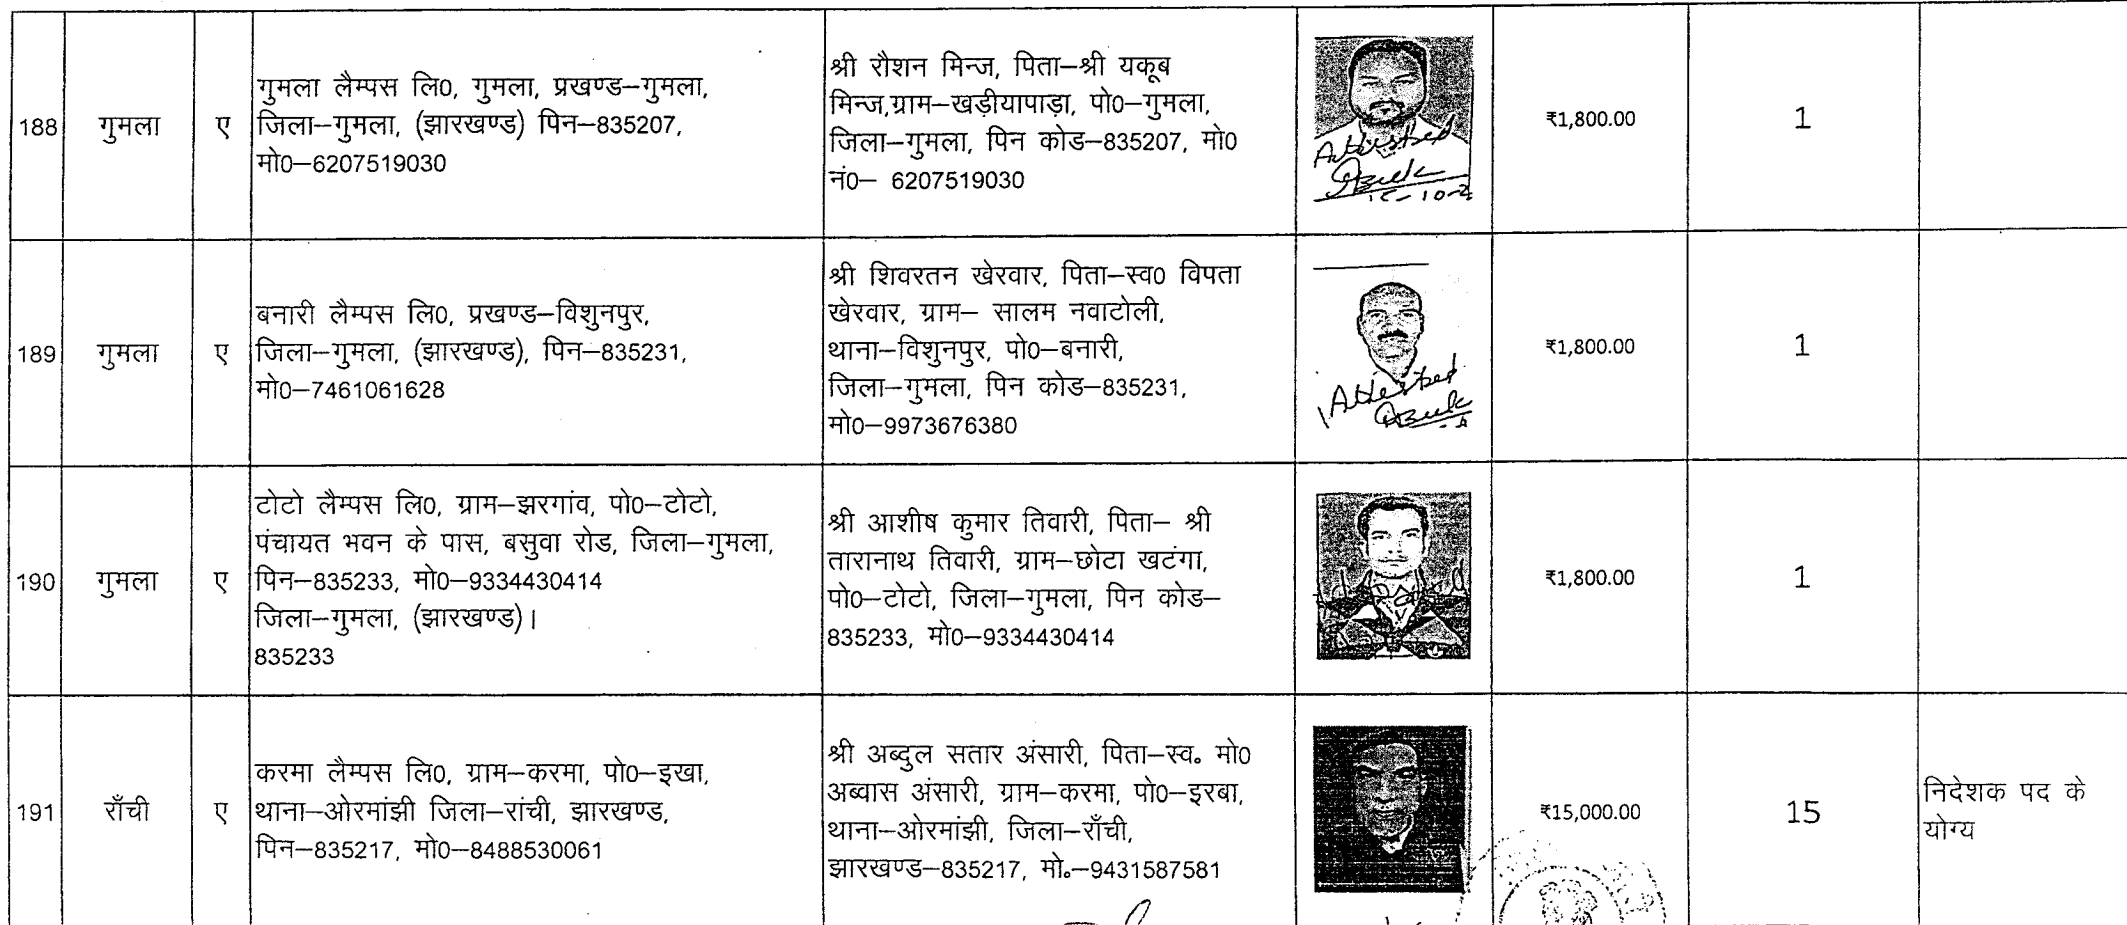 188
गुमला
ए
गुमला लैम्पस लि0, गुमला, प्रखण्ड–गुमला,
जिला–गुमला, (झारखण्ड) पिन–835207,
मो0–6207519030
श्री रौशन मिन्ज, पिता–श्री यकूब
मिन्ज,ग्राम–खड़ीयापाड़ा, पो0–गुमला,
जिला–गुमला, पिन कोड–835207, मो0
नं0– 6207519030
Attested
₹1,800.00
1
189
गुमला
ए
बनारी लैम्पस लि0, प्रखण्ड–विशुनपुर,
जिला–गुमला, (झारखण्ड), पिन–835231,
मो0–7461061628
श्री शिवरतन खेरवार, पिता–स्व0 विपता
खेरवार, ग्राम– सालम नवाटोली,
थाना–विशुनपुर, पो0–बनारी,
जिला–गुमला, पिन कोड–835231,
मो0–9973676380
Attested
₹1,800.00
1
190
गुमला
ए
टोटो लैम्पस लि0, ग्राम–झरगांव, पो0–टोटो,
पंचायत भवन के पास, बसुवा रोड, जिला–गुमला,
पिन–835233, मो0–9334430414
जिला–गुमला, (झारखण्ड)।
835233
श्री आशीष कुमार तिवारी, पिता– श्री
तारानाथ तिवारी, ग्राम–छोटा खटंगा,
पो0–टोटो, जिला–गुमला, पिन कोड–
835233, मो0–9334430414
₹1,800.00
1
191
राँची
ए
करमा लैम्पस लि0, ग्राम–करमा, पो0–इखा,
थाना–ओरमांझी जिला–रांची, झारखण्ड,
पिन–835217, मो0–8488530061
श्री अब्दुल सतार अंसारी, पिता–स्व० मो0
अब्वास अंसारी, ग्राम–करमा, पो0–इरबा,
थाना–ओरमांझी, जिला–राँची,
झारखण्ड–835217, मो०–9431587581
₹15,000.00
15
निदेशक पद के
योग्य